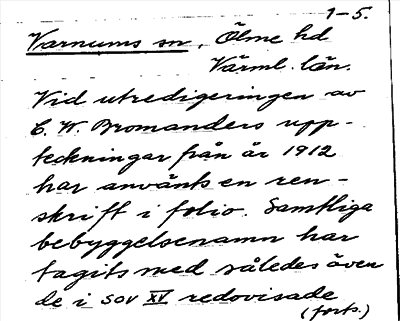 1-5.
Varnums sn, Ölme hd
Värml. län.
Vid utredigeringen av
C. W. Bromanders upp-
teckningar från år 1912
har använts en ren-
skrift i folio. Samtliga
bebyggelsenamn har
tagits med således även
de i SOV XV redovisade
(forts.)